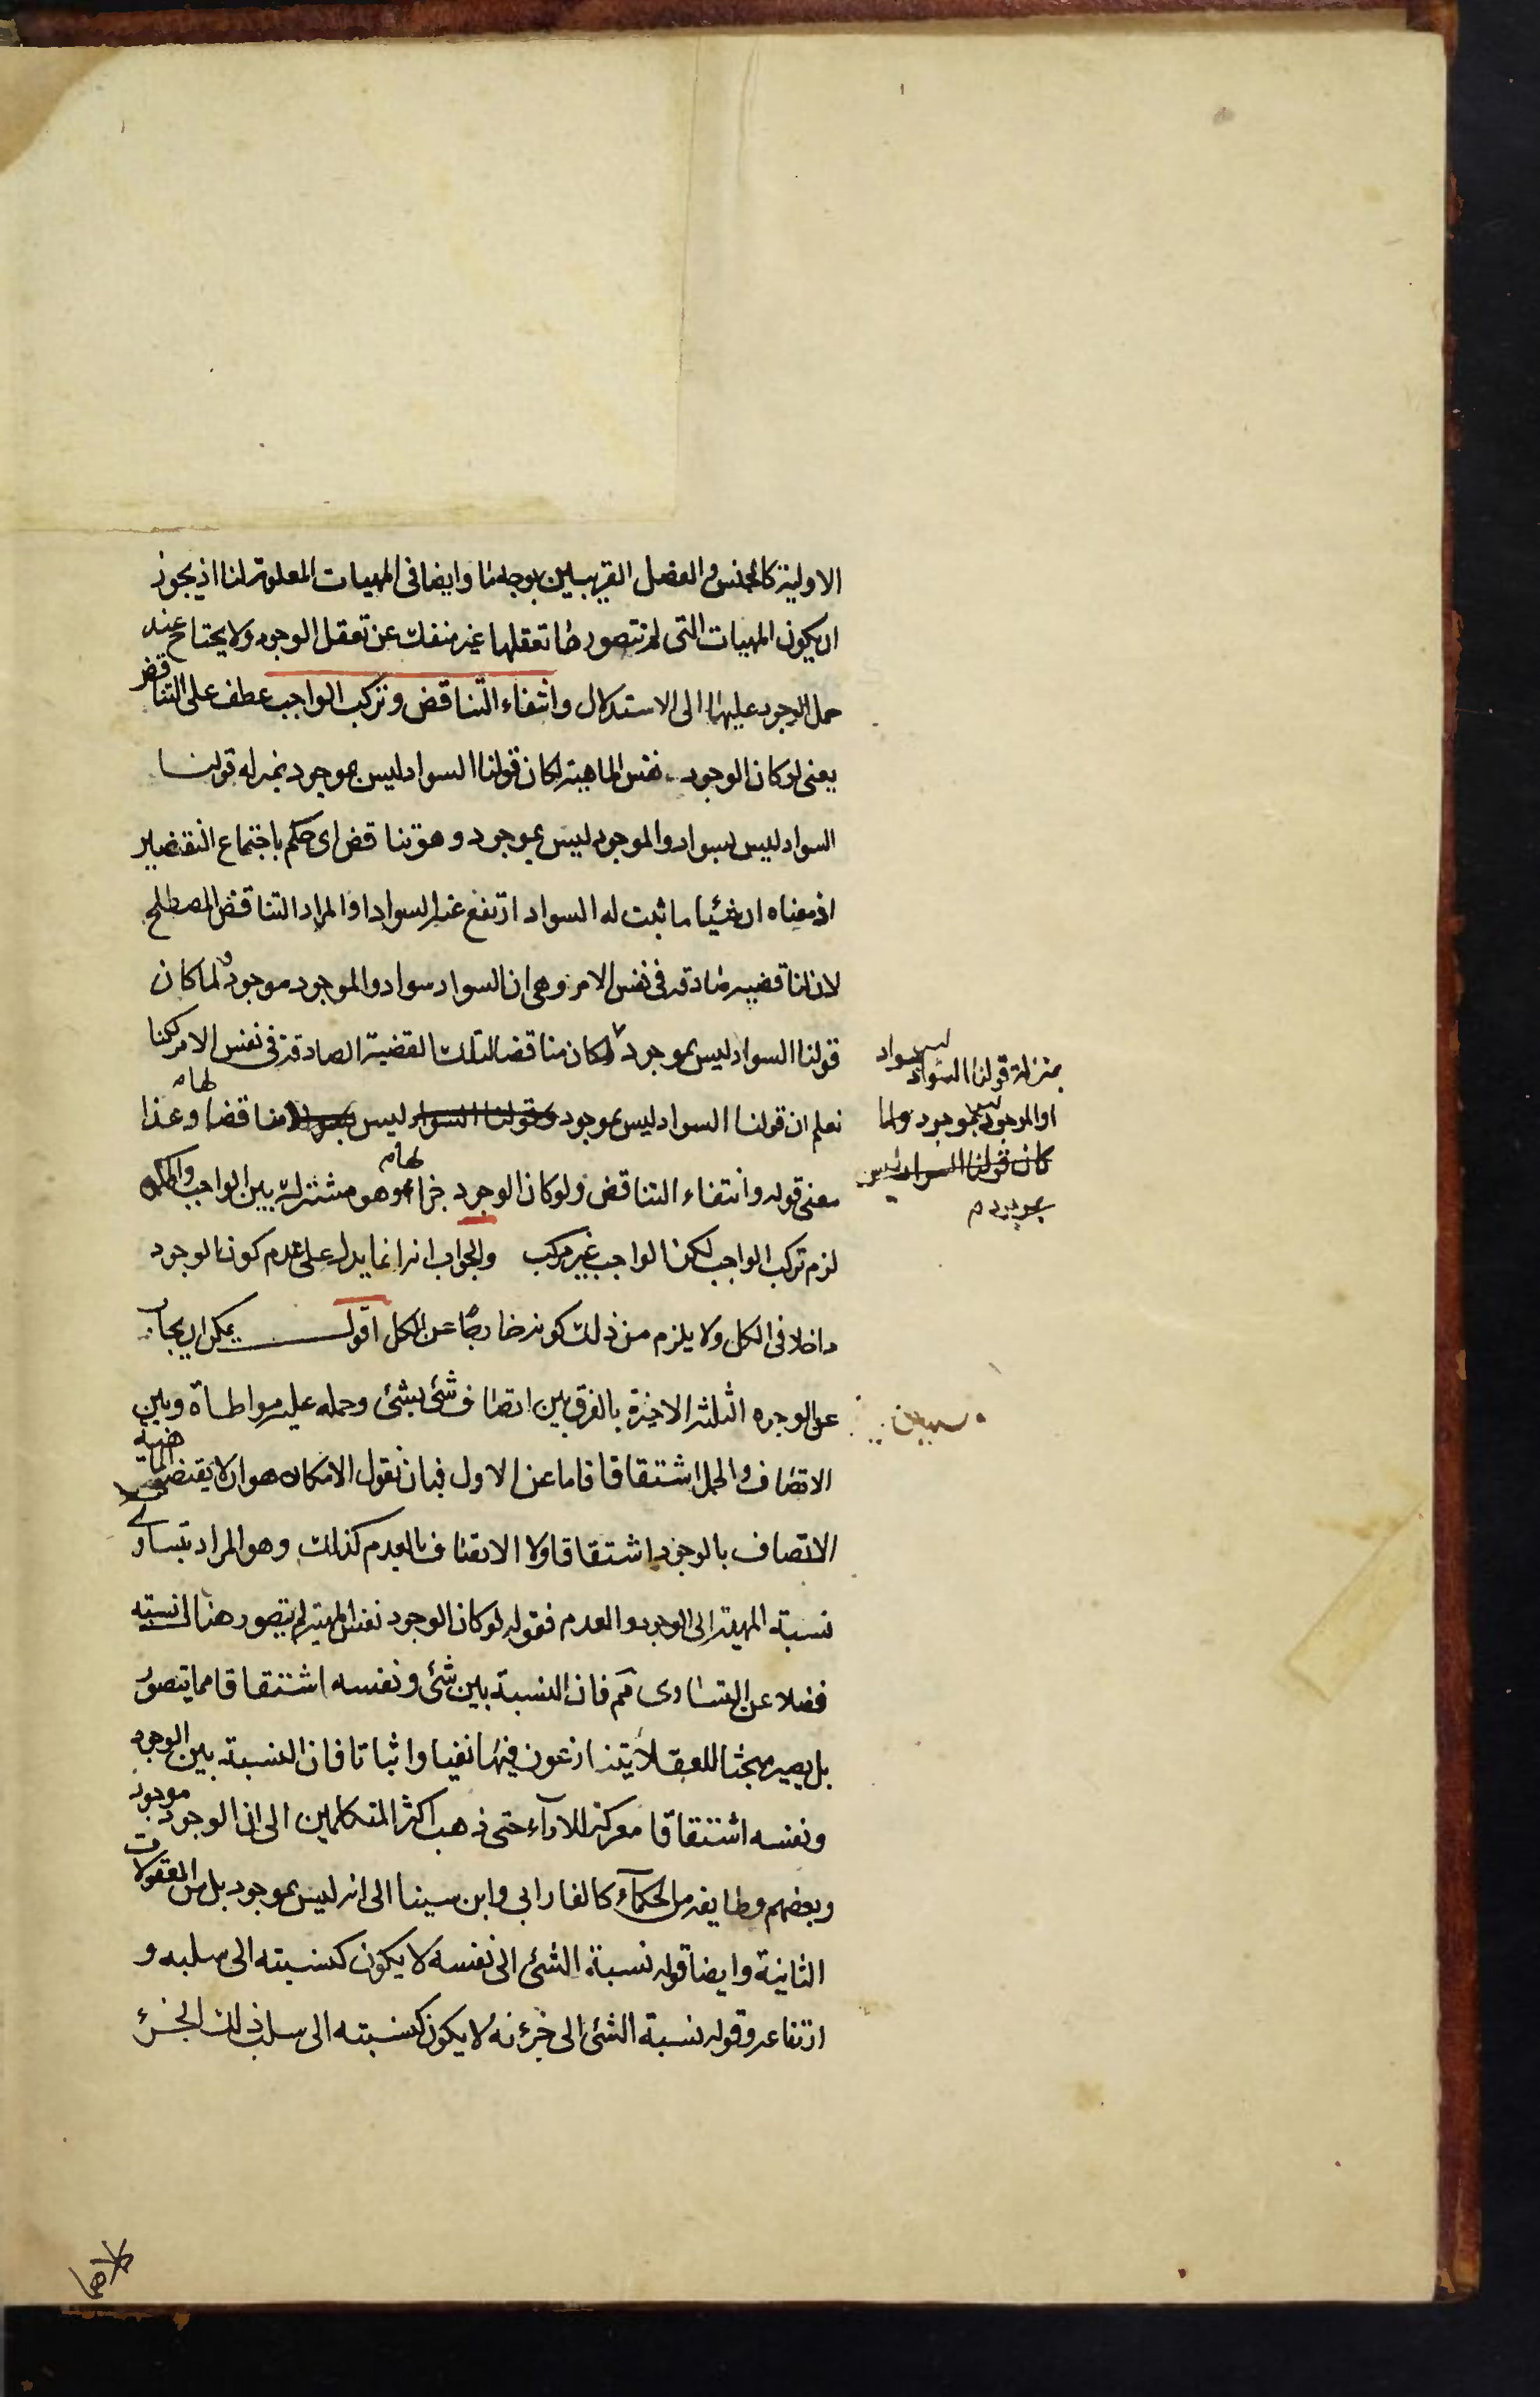 الاولية كالجنس والفصل القريبين بوجه ما وايضا فى المهيات المعلومة لنا اذ يجوز
ان يكون المهيات التى لم نتصورها تعقلها غير منفك عن تعقل الوجود ولا يحتاج عند
حمل الوجود عليها الى الاستدلال وانتفاء التناقض وتركب الواجب عطف على التناقض
يعنى لو كان الوجود نفس الماهية لكان قولنا السواد ليس بموجود بمنزله قولنا
السواد ليس بسواد والموجود ليس بموجود وهو تناقض اى حكم باجتماع النقيضين
اذ معناه ان شيئا ما ثبت له السواد ارتفع عنه السواد او المراد التناقض المصطلح
لان لنا قضيه صادقه فى نفس الامر وهى ان السواد سواد والموجود موجود ولما كان
قولنا السواد ليس بموجود لكان مناقضا لتلك القضية الصادقة فى نفس الامر لكنا
نعلم ان قولنا السواد ليس بموجود وقولنا السواد ليس بسواد مناقضا لهام وهذا
معنى قوله وانتفاء التناقض ولو كان الوجود جزاء لهام وهو مشترك بين الواجب والممكن
لزم تركب الواجب لكن الواجب غير مركب والجواب انه انما يدل على عدم كون الوجود
داخلا فى الكل ولا يلزم من ذلك كونه خارجا عن الكل اقول يمكن ان يجاب
عن الوجوه الثلثه الاخيرة بالفرق بين اتصاف شئ بشئ وحمله عليه مواطاة وبين
الاتصاف والحمل اشتقاقا فاما عن الاول فبان نقول الامكان هو ان لا يقتضى الماهية
الاتصاف بالوجود اشتقاقا ولا الاتصاف بالعدم كذلك وهو المراد بتساوى
نسبة المهية الى الوجود والعدم فقوله لو كان الوجود نفس المهية لم يتصور هناك نسبته
فضلا عن التساوى مم فان النسبة بين شئ ونفسه اشتقاقا مما يتصور
بل يصير مبحثا للعقلا يتنازعون فيها نفيا واثباتا فان النسبة بين الوجود
ونفسه اشتقاقا معركة للآراء حتى ذهب اكثر المتكلمين الى ان الوجود موجود
وبعضهم وطايفه من الحكمآء كالفارابى وابن سينا الى انه ليس بموجود بل من المعقولات
الثانية وايضا قوله نسبة الشئ الى نفسه لا يكون كنسبته الى سلبه و
ارتفاعه وقوله نسبة الشئ الى جزءه لا يكون كنسبته الى سلب ذلك الجزء
بمنزلة قولنا السواد ليس بسواد
او الموجود ليس بموجود ولما
كان قولنا السواد ليس
بموجود م